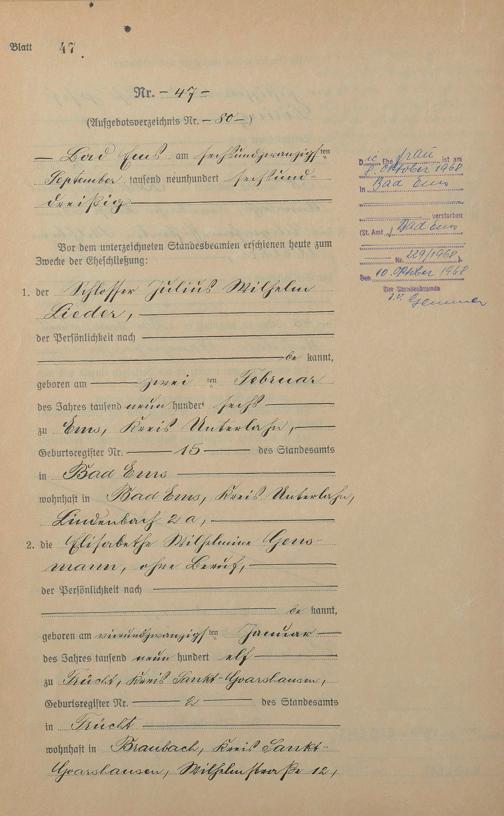 Blatt 47
Nr. - 47 -
(Aufgebotsverzeichnis Nr. - 80 -)
Bad Ems am sechsundzwanzigsten
September tausend neunhundert sechsund-
dreißig
Vor dem unterzeichneten Standesbeamten erschienen heute zum
Zwecke der Eheschließung:
1. der Schlosser Julius Wilhelm
Lieder,
der Persönlichkeit nach
be kannt,
geboren am zwei ten Februar
des Jahres tausend neun hundert sechs
zu Ems, Kreis Unterlahn,
Geburtsregister Nr. 15 des Standesamts
in Bad Ems
wohnhaft in Bad Ems, Kreis Unterlahn,
Lindenbach 2a,
2. die Elisabethe Wilhelmine Gens-
mann, ohne Beruf,
der Persönlichkeit nach
be kannt,
geboren am vierundzwanzigsten Januar
des Jahres tausend neun hundert elf
zu Frücht, Kreis Sankt-Goarshausen,
Geburtsregister Nr. 2 des Standesamts
in Frücht
wohnhaft in Braubach, Kreis Sankt-
Goarshausen, Wilhelmstraße 12,
Die Ehefrau ist am
8. Oktober 1968
in Bad Ems
verstorben
(St. Amt Bad Ems
Nr. 229/1968)
Den 10. Oktober 1968
Der Standesbeamte